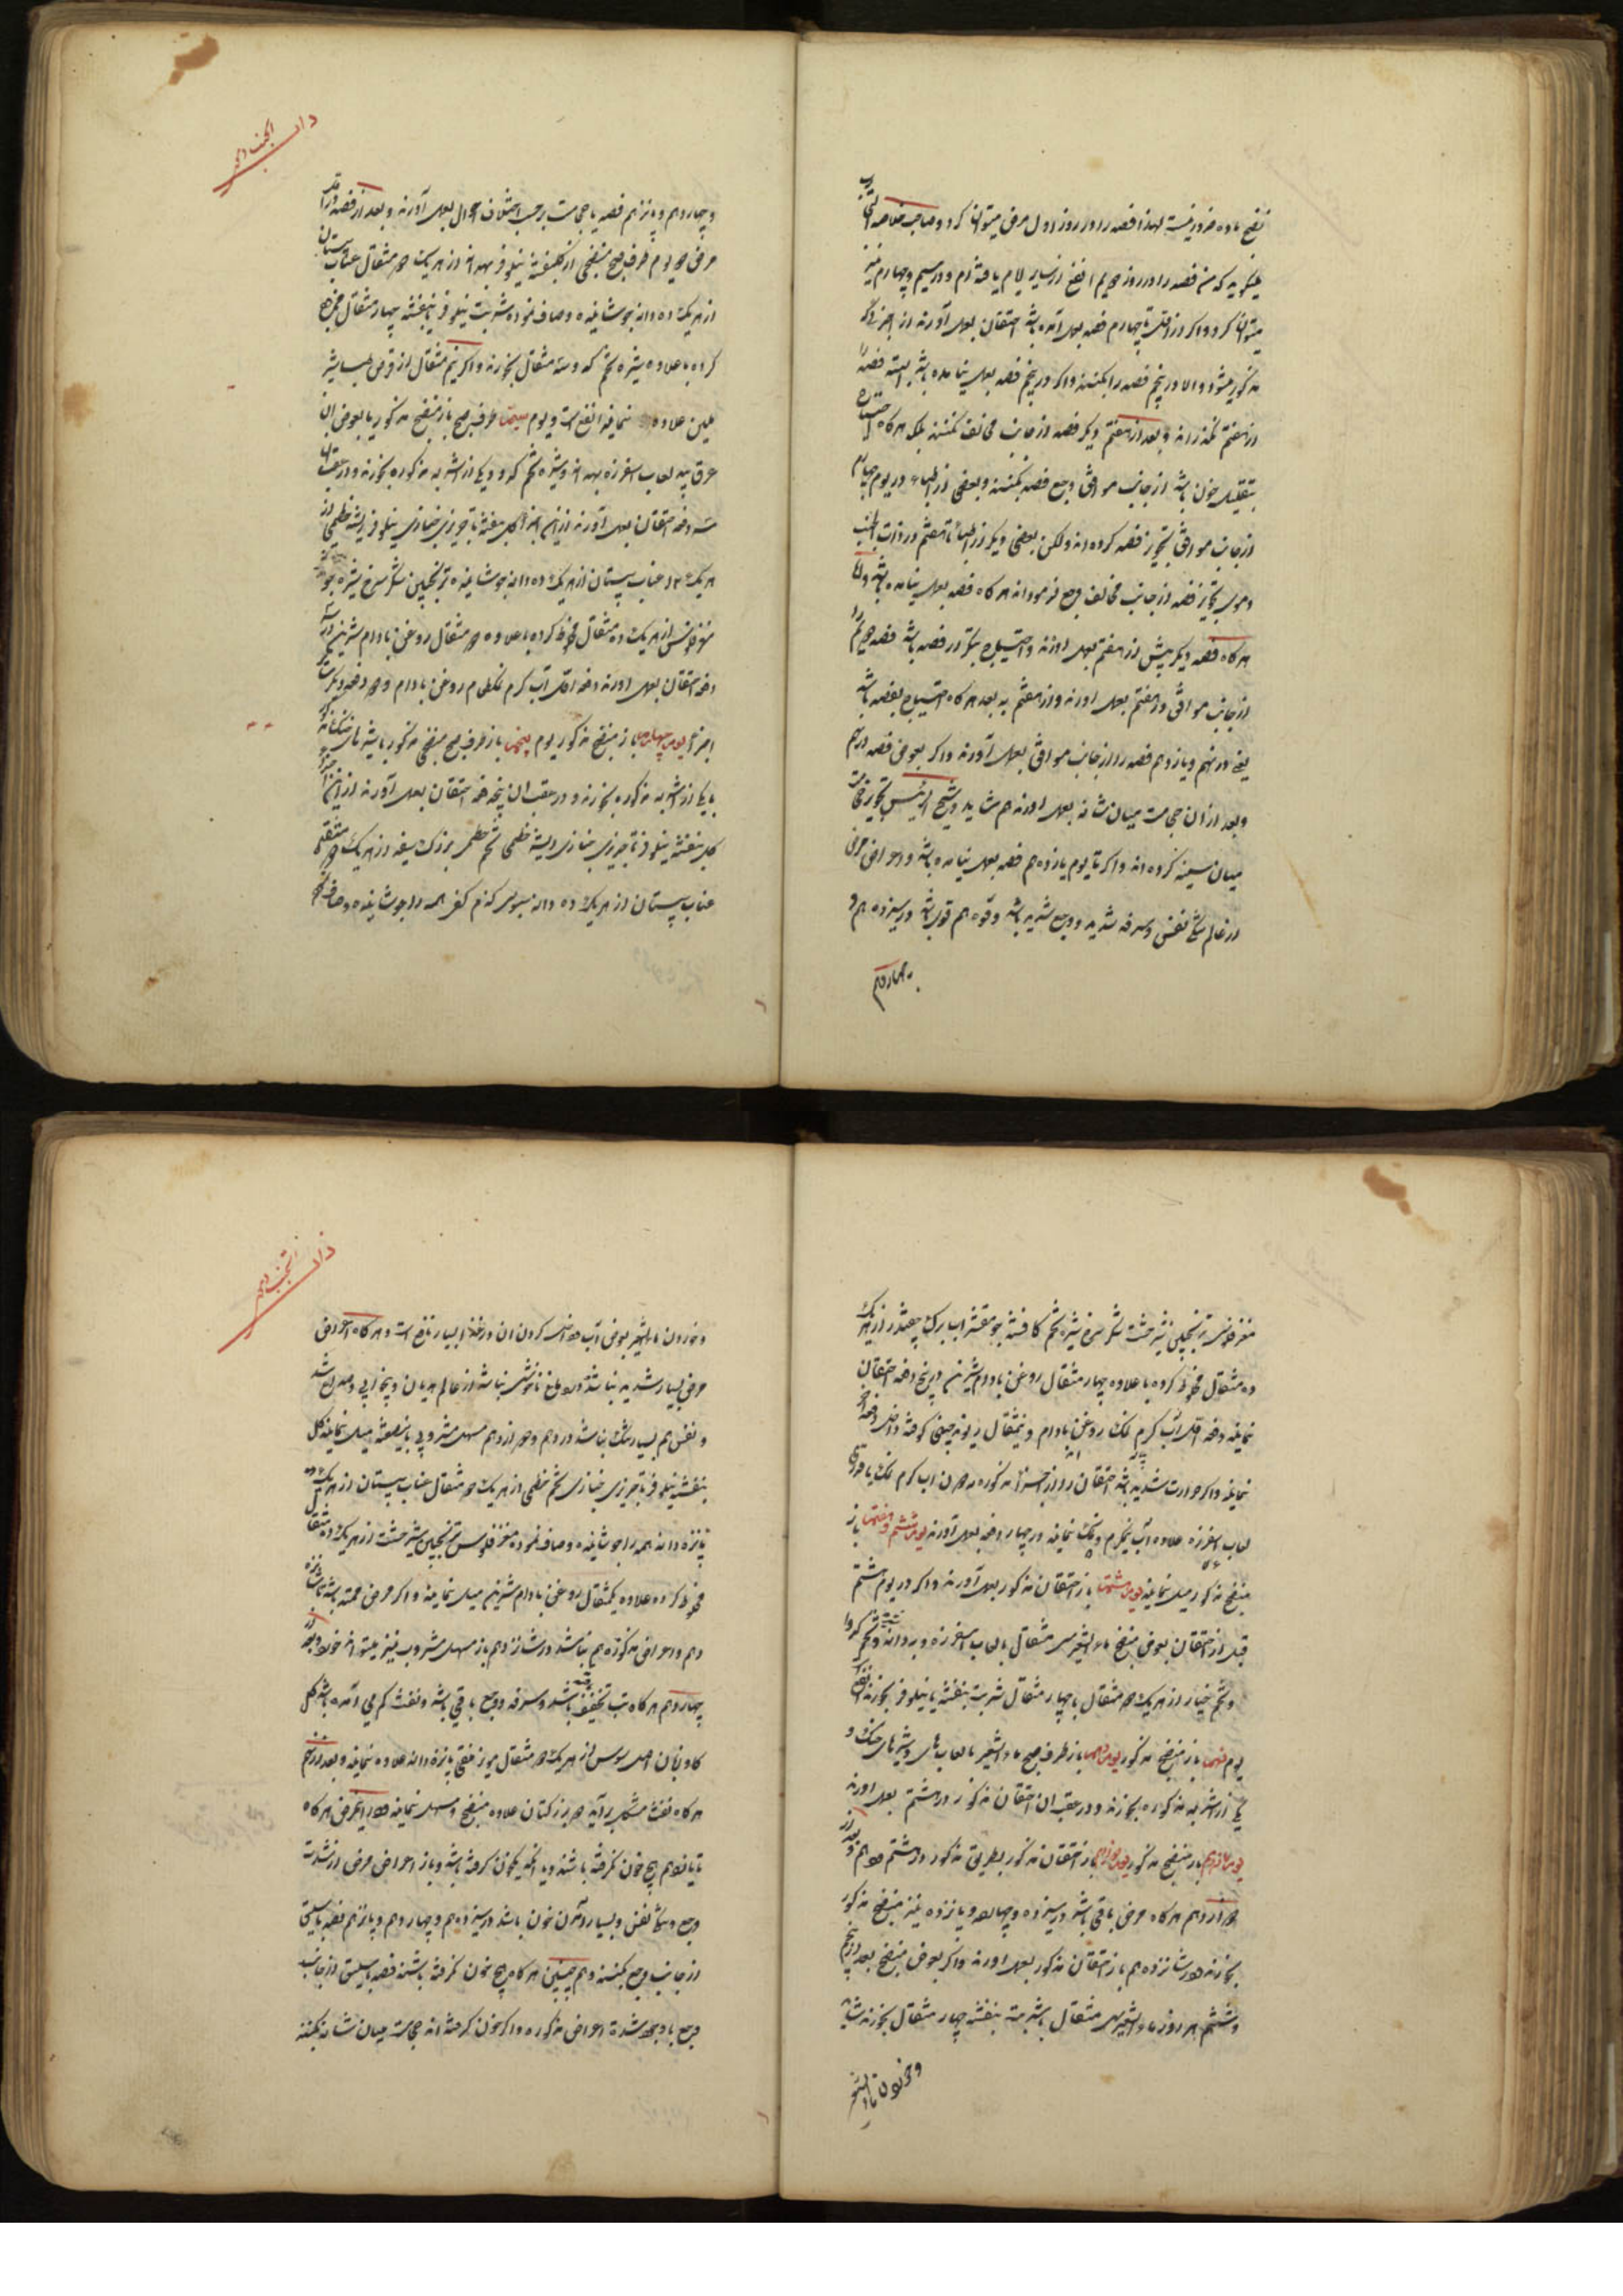 نضج ماده ضرور نیست لهذا فصد را در روز اول مرض میتوان کرد و صاحب خلاصة التجارب
میگوید که من فصد را در روز دویم انفع از سایر ایام یافته‌ام و در سیم و چهارم نیز
میتوان کرد و اگر در اول تا چهارم فصد بعمل آمده باشد احتقان بعمل آورند از اجزا دیگر
مذکور میشود و الا در پنجم فصد را بکنند و اگر در پنجم فصد بعمل نیامده باشد البته فصد را
از هفتم نگذرانند و بعد از هفتم دیگر فصد از جانب مخالف نکنند بلکه هرگاه احتیاج
بتقلیل خون باشد از جانب موافق وجع فصد بکنند و بعضی از اطباء در یوم چهارم
از جانب موافق تجویز فصد کرده‌اند ولکن بعضی دیگر از اطباء تا هفتم در ذات الجنب
دموی تجویز فصد از جانب مخالف وجع فرموده‌اند هرگاه فصد بعمل نیامده باشد و اما
هرگاه فصد دیگر پیش از هفتم بعمل آورند و احتیاج بتکرار فصد باشد فصد دویم را
از جانب موافق در هفتم بعمل آورند و از هفتم به بعد هرگاه احتیاج بفصد باشد
یعنی در نهم و یازدهم فصد را از جانب موافق بعمل آورند و اگر بعوض فصد در نهم
و بعد از آن حجامت میان شانه بعمل آورند هم شاید و شیخ الرئیس تجویز حجامت
میان سینه کرده‌اند و اگر تا یوم یازدهم فصد بعمل نیامده باشد و اعراض مرض
از عالم تنگی نفس و سرفه شدید و وجع شدید باشد و قوه هم قوی باشد در سیزدهم و
چهاردهم
ذات الجنب دموی
و چهاردهم و پانزدهم فصد یا حجامت برحسب اختلاف احوال بعمل آورند و بعد از فصد در اول
مرض دویوم طرف صبح منضجی از گلبنفشه نیلوفر بهدانه از هریک دو مثقال عناب سپستان
از هریک ده دانه جوشانیده و صاف نموده شربت نیلوفر یا بنفشه چهار مثقال ممزوج
کرده با علاوه شیره تخم کدو سه مثقال بخورند و اگر نیم مثقال از قرص طباشیر
ملین علاوه نمایند انفع است و یوم سیم طرف صبح باز منضج مذکور یا بعوض آن
عرق بید لعاب اسفرزه بهدانه و شیره تخم کدو و یکی از اشربه مذکوره بخورند و در عقب آنها
سه دفعه احتقان بعمل آورند از این اجزا گل بنفشه تاجریزی خبازی نیلوفر ریشه خطمی از
هریک عناب سپستان از هریک ده دانه جوشانیده ترنجبین شکر سرخ شیره جو
مغز فلوس از هریک ده مثقال مخلوط کرده با علاوه دو مثقال روغن بادام شیرین در سه
دفعه احتقان بعمل آورند دفعه اول آب گرم نمک طعام روغن بادام و دو دفعه دیگر
اجزا یوم چهارم باز منضج مذکور یوم پنجم باز طرف صبح منضج مذکور با شیره‌های خنک مذکور
با یکی از اشربه مذکوره بخورند و در عقب آن پنج دفعه احتقان بعمل آورند از این اجزا
گل بنفشه نیلوفر تاجریزی خبازی ریشه خطمی تخم خطمی بزرک سفید از هریک دو مثقال
عناب سپستان از هریک ده دانه سبوس گندم کفی همه را جوشانیده و صاف کرده
مغز فلوس ترنجبین شیرخشت شکر سرخ شیره تخم کافشه جو مقشر آب برگ چغندر از هریک
ده مثقال مخلوط کرده با علاوه چهار مثقال روغن بادام شیرین در پنج دفعه احتقان
نمایند دفعه اول آب گرم نمک روغن بادام و نیمثقال ریوند چینی کوفته داخل دفعه آخر
نمایند و اگر حرارت شدید باشد احتقان را از اجزاء مذکوره بدون آب گرم نمک با
لعاب اسفرزه علاوه آب نیمگرم و نمک نمایند در چهار دفعه بعمل آورند یوم ششم و هفتم باز
منضج مذکور میل نمایند یوم هشتم باز احتقان مذکور بعمل آورند و اگر در یوم هشتم
قبل از احتقان بعوض منضج ماء الشعیر سی مثقال با لعاب اسفرزه و بهدانه و تخم کدو
و تخم خیار از هریک دو مثقال با چهار مثقال شربت بنفشه یا نیلوفر بخورند انفع است
یوم نهم باز منضج مذکور یوم دهم باز طرف صبح ماء الشعیر با لعاب‌های و شیره‌های خنک و
یکی از اشربه مذکوره بخورند و در عقب آن احتقان مذکور در هشتم بعمل آورند
یوم یازدهم باز منضج مذکور یوم دوازدهم باز احتقان مذکور بطریق مذکور در هشتم و دهم و بعد از
دوازدهم هرگاه مرض باقی باشد در سیزده و چهارده و پانزده نیز منضج مذکور
بخورند و در شانزدهم باز احتقان مذکور بعمل آورند و اگر بعوض منضج بعد از پنجم
و ششم هر روز ماء الشعیر سی مثقال با شربت بنفشه چهار مثقال بخورند شاید
و خوردن ماء الشعیر
ذات الجنب دموی
و خوردن ماء الشعیر بعوض آب و داخل کردن آن در غذا بسیار نافع است و هرگاه اعراض
مرض بسیار شدید نباشد و دماغ ناخوشی نباشد از عالم هذیان و بیخوابی و صداع شدید
و نفس هم بسیار تنگ نباشد در دهم و دوازدهم مسهل مشروبی باینصفه میل نمایند گل
بنفشه نیلوفر تاجریزی خبازی تخم خطمی از هریک دو مثقال عناب سپستان از هریک
پانزده دانه همه را جوشانیده و صاف نموده مغز فلوس ترنجبین شیرخشت از هریک ده مثقال
مخلوط کرده علاوه یکمثقال روغن بادام شیرین میل نمایند و اگر مرض ممتد باشد تا شانزده
دهم و اعراض مذکوره هم نباشد در شانزدهم باز مسهل مشروب نیز میتوانند خورد و بعد از
چهاردهم هرگاه تب تخفیف یافته باشد و سرفه و وجع باقی باشد و نفث کم می‌آمده باشد گل
گاوزبان اصل سوس از هریک دو مثقال مویز منقی پانزده دانه علاوه نمایند و بعد از نهم
هرگاه نفث مشکل برآید بزر کتان علاوه منضج و مسهل نمایند و در این مرض هرگاه
تا پانزدهم هیچ خون نگرفته باشند و یا آنکه خون گرفته باشند و باز اعراض مرض از شدت
وجع و تنگی نفس و بسیار آمدن خون باشد در سیزدهم و چهاردهم و پانزدهم فصد باسلیق
از جانب وجع بکنند و همچنین هرگاه هیچ خون نگرفته باشند فصد باسلیق از جانب
وجع با وجود شدة اعراض مذکوره و اگر خون گرفته‌اند حجامت میان شانه بکنند